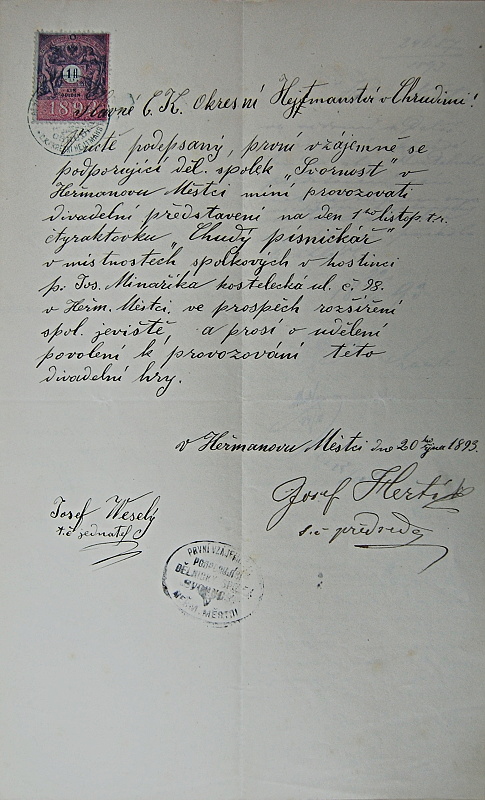 1
1893
Slavné C. K. Okresní Hejtmanství v Chrudimi!
podepsaný, první vzájemně se
podporující děl. spolek „Svornost" v
Heřmanovu Městci míní provozovati
divadelní představení na den 1ho listop. t.r.
čtyraktovku „Chudý písničkář"
v místnostech spolkových v hostinci
p. Jos. Minaříka kostelecká ul. č. 98.
v Heřm. Městci, ve prospěch rozšíření
spol. jeviště a prosí o udělení
povolení k provozování této
divadelní hry.
v Heřmanovu Městci dne 20ho října 1893.
Josef Weselý
t.č. jednatel
Josef
t.č. předseda
PRVNÍ VZÁJEMNĚ
PODPORUJÍCÍ
DĚLNICKÝ SPOLEK
SVORNOST
HEŘM. MĚSTCI